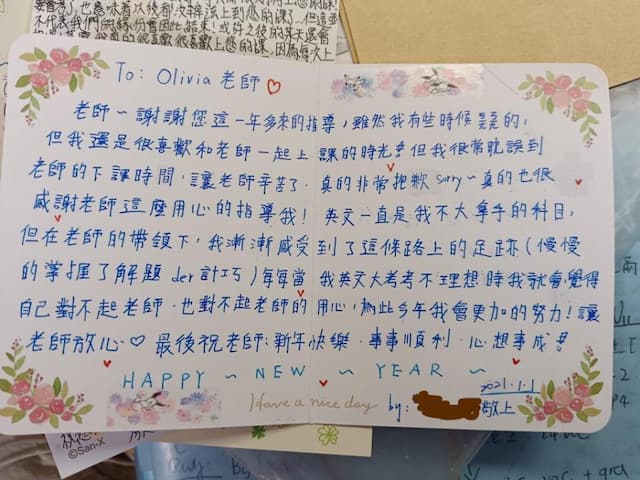 不代表我們的緣份會因此結束！或許之後的某天還會
To: Olivia 老師
老師～謝謝您這一年多來的指導，雖然我有些時候呆呆的，
但我還是很喜歡和老師一起上課的時光！但我很常耽誤到
老師的下課時間，讓老師辛苦了，真的非常抱歉 sorry～真的也很
感謝老師這麼用心的指導我！英文一直是我不大拿手的科目，
但在老師的帶領下，我漸漸感受到了這條路上的足跡（慢慢
的掌握了解題 der 技巧）每每當我英文大考考不理想時我就會覺得
自己對不起老師，也對不起老師的用心，為此今年我會更加的努力！讓
老師放心♡ 最後祝老師：新年快樂．事事順利．心想事成！
HAPPY ~ NEW ~ YEAR ~
2021.1.1
Have a nice day
by: 敬上
©San-X